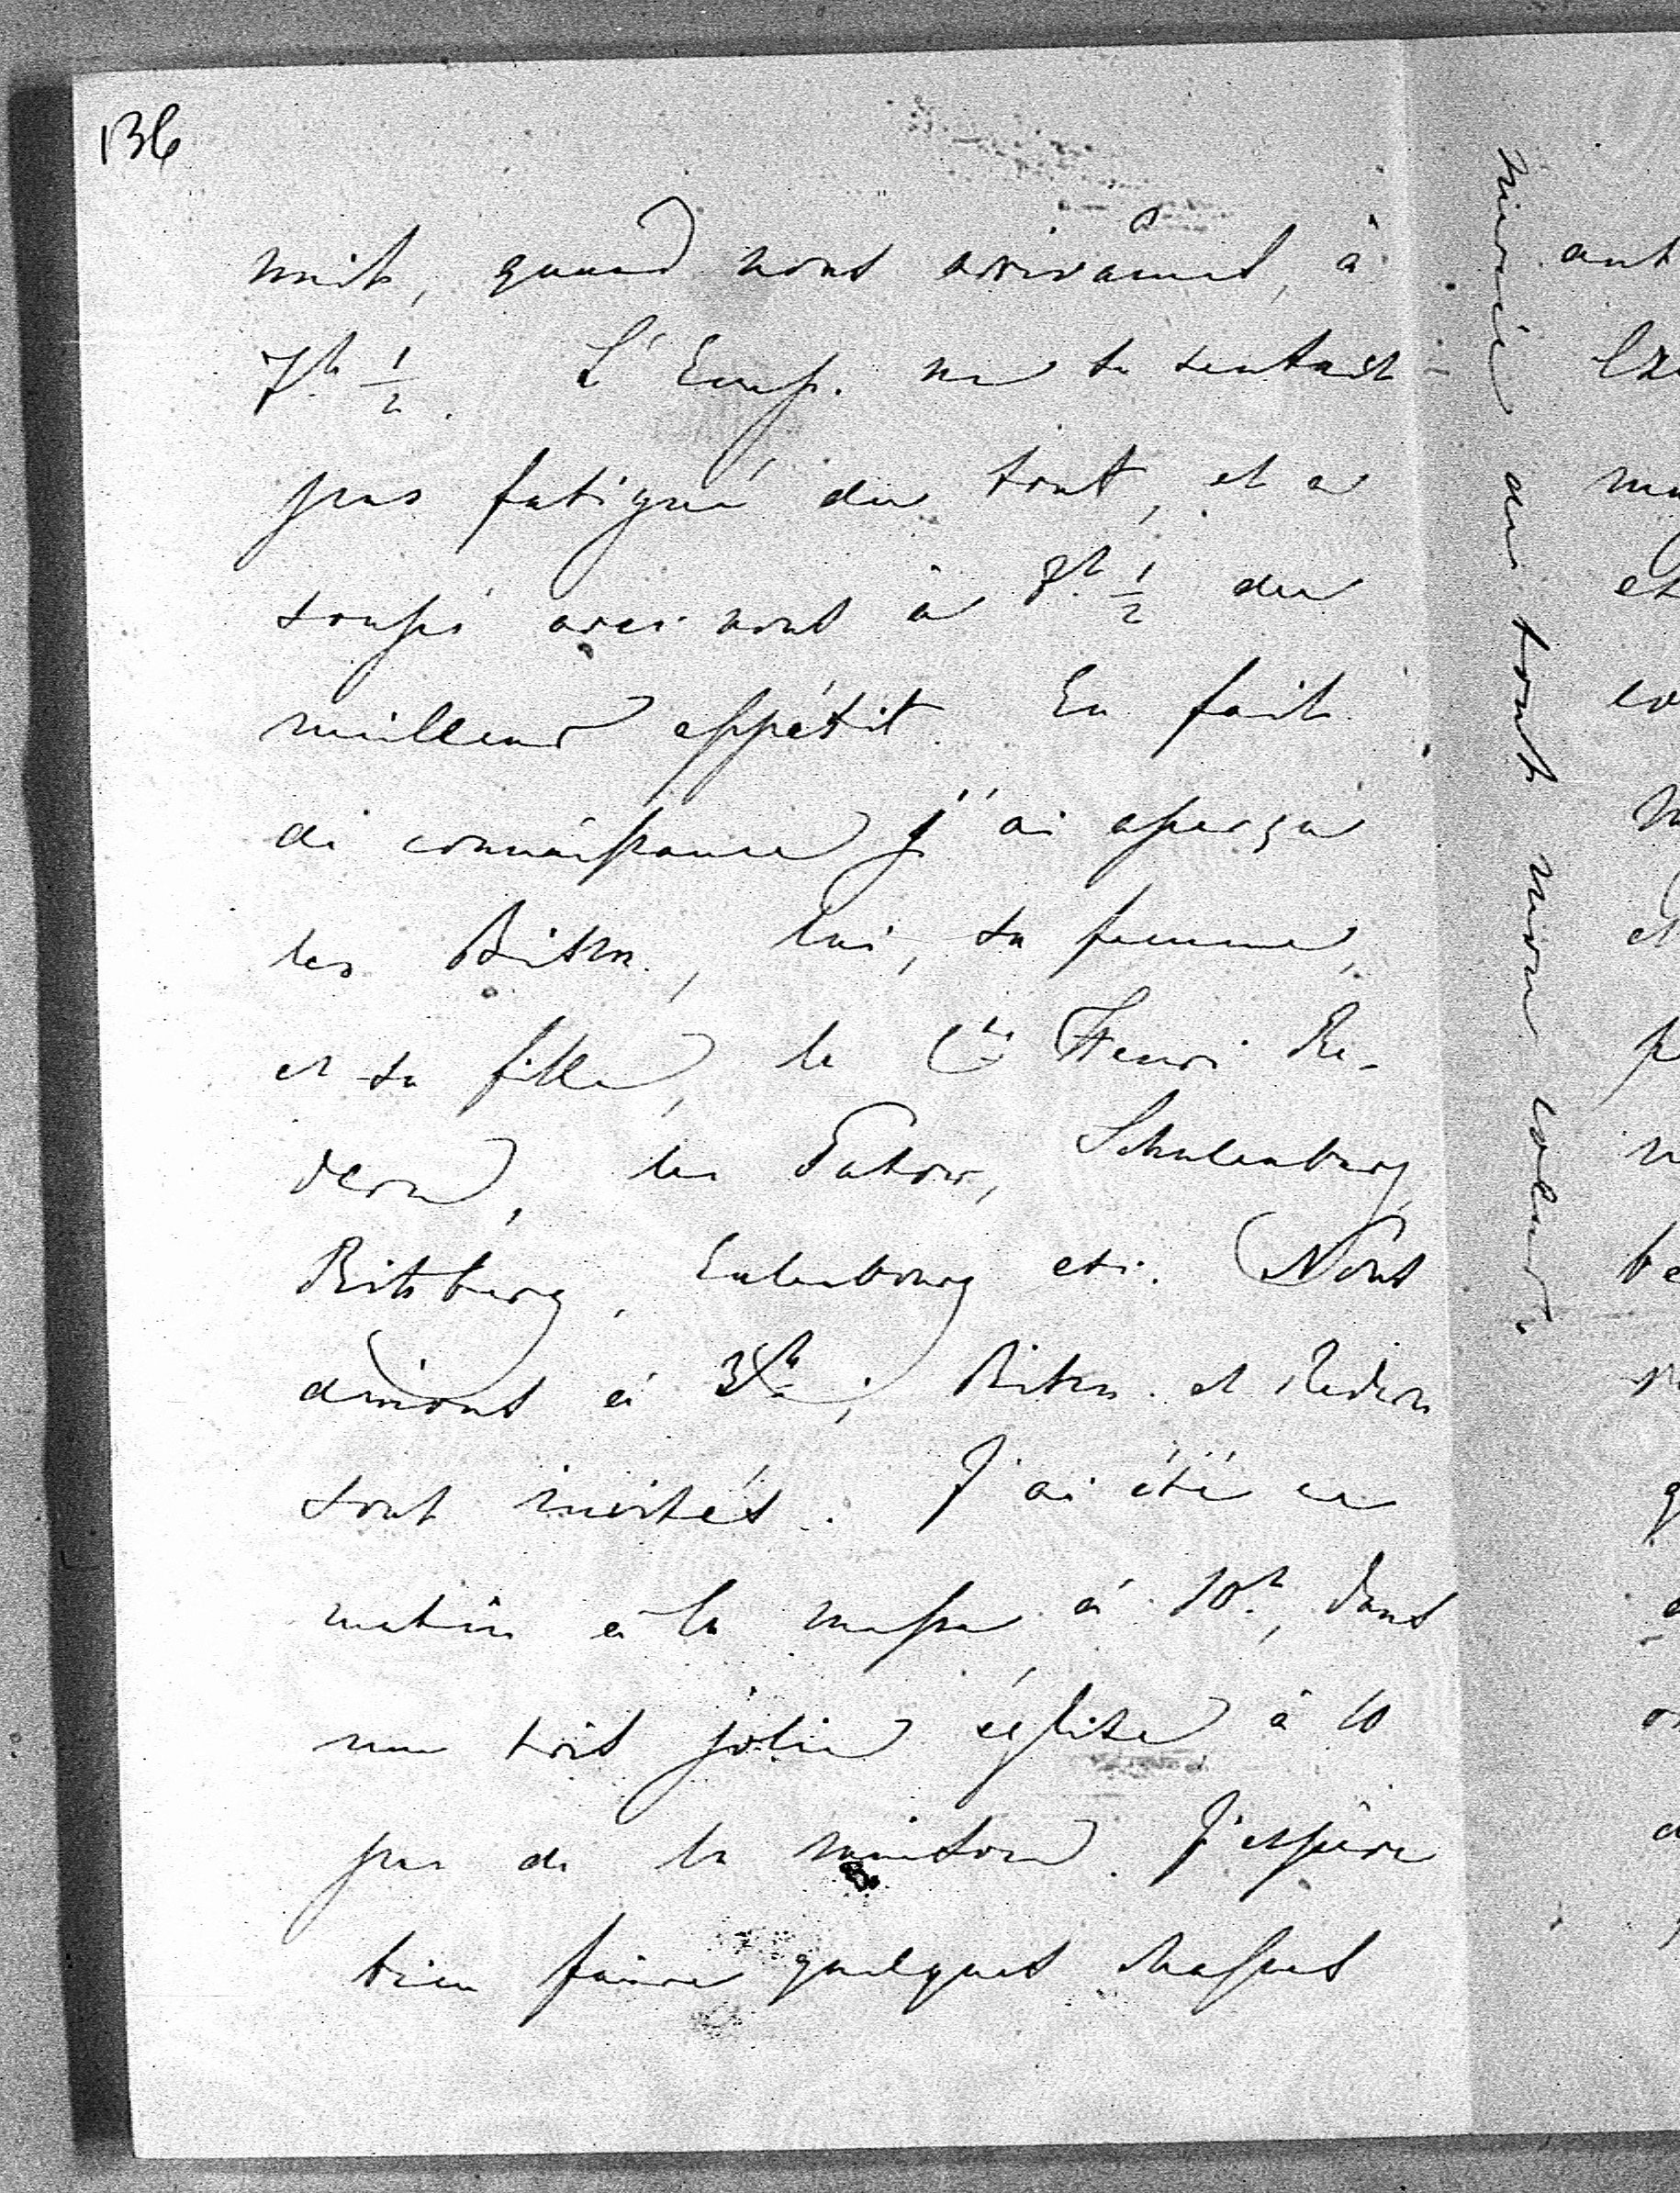 136
nuit, quand nous arrivâmes, à
7h 1/2. L'Emp. ne se sentait
pas fatigué du tout, et a
soupé avec nous à 8h 1/2 du
meilleur appétit. En fait
de connaissance j'ai aperçu
les Bism., lui, sa femme,
et sa fille, le Cte Henri Re-
dern, les Schulenburg,
Eulenbourg etc. Nous
dinons à ; Bism. et Redern
sont invités. J'ai été ce
matin à la messe à 10h, dans
une très jolie église à 10
pas de la maison. J'espère
bien faire quelques
de tout mon coeur.